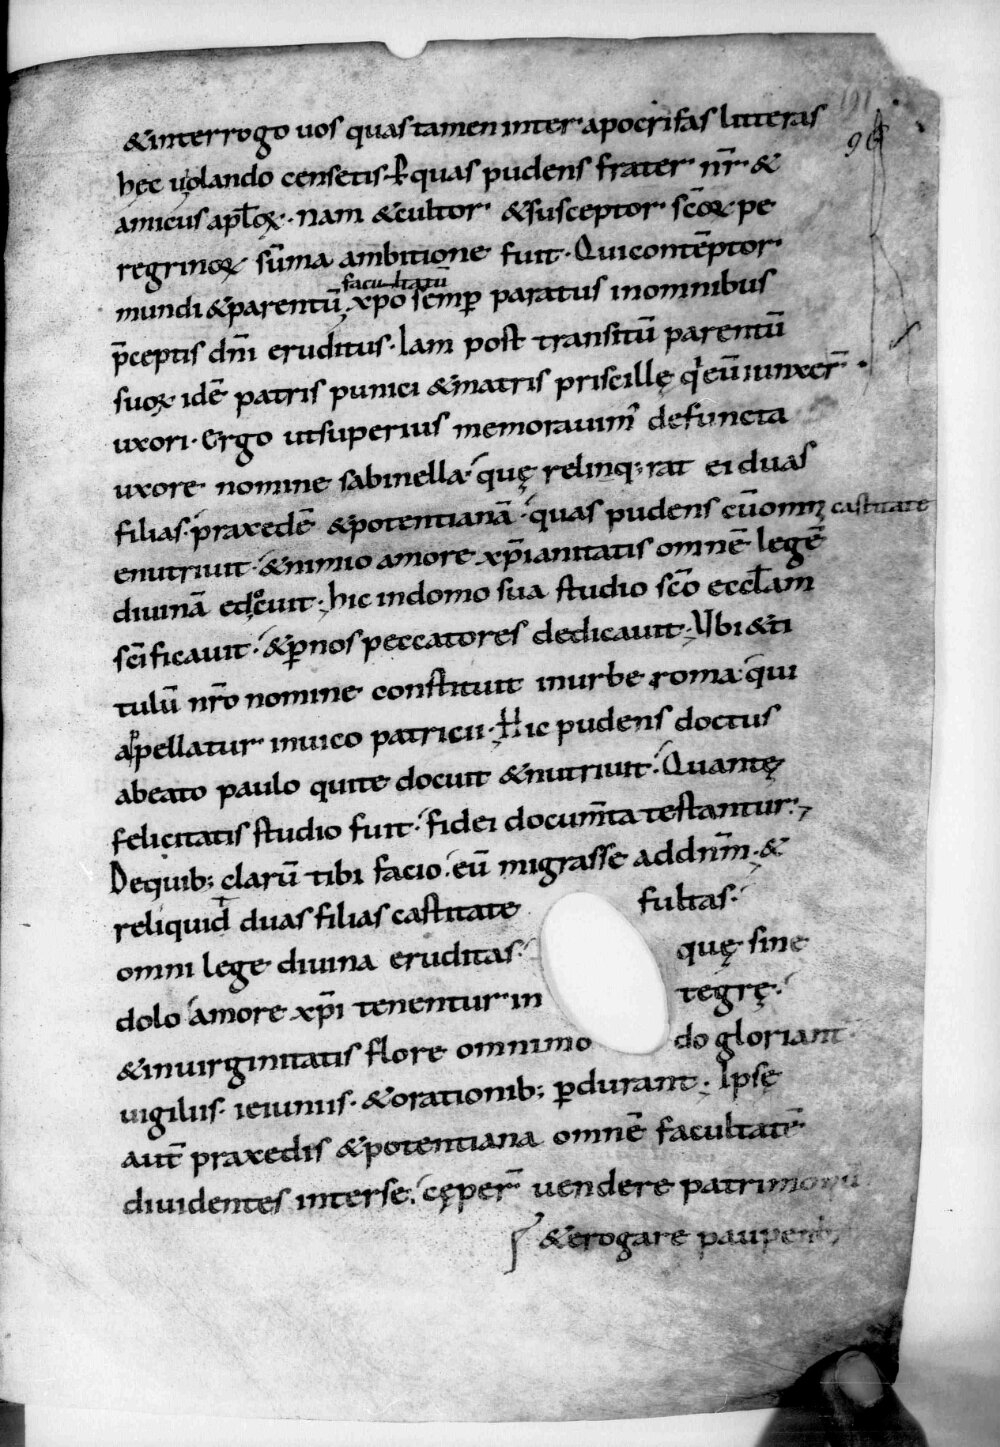 191
96
&interrogo uos quas tamen inter apocrifas litteras
hęc uolando censetis · quas pudens frater nr̄ &
amicus apl̄oꝝ · Nam &cultor &susceptor sc̄oꝝ pe
regrinoꝝ sūma ambitione fuit · Qui contēptor
facultatū
mundi &parentū ; xp̄o semꝑ paratus inomnibus
p̄ceptis dn̄i eruditus · Iam post transitū parentū
suoꝝ idē patris punici &matris priscillę q' eū iunxer̄ ·
uxori · Ergo utsuperius memorauim' defuncta
uxore nomine sabinella quę relinq;rat ei duas
filias praxedē &potentianā · quas pudens cūomni castitate
enutriuit · &nimio amore xp̄ianitatis omnē legē
diuinā edocuit ; hic indomo sua studio sc̄o eccl̄am
sc̄ificauit · &ꝑnos peccatores dedicauit · Ubi &ti
tulū nr̄o nomine constituit inurbe roma qui
appellatur inuico patricii · Hic pudens doctus
abeato paulo quite docuit &nutriuit · Quantę
felicitatis studio fuit · fidei docum̄ta testantur ;
Dequib; clarū tibi facio · eū migrasse addn̄m · &
reliquid duas filias castitate fultas ·
omni lege diuina eruditas · quę sine
dolo amore xp̄i tenentur in tegrę ·
&inuirginitatis flore omnimo do gloriant
uigiliis · ieiuniis · &orationib; ꝑdurant · Ipsę
aut̄ praxedis &potentiana omnē facultatē
diuidentes interse · cęper̄ uendere patrimoniū
&erogare pauperib;